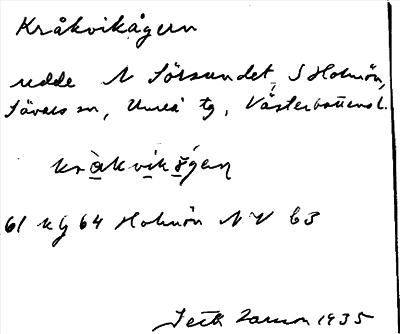 Kråkvikågern
udde N Sörsundet, S Holmön,
Sävars sn, Umeå tg, Västerbottens l.
kråkvik
61 kg 64 Holmön NV b3
Larsson 1935